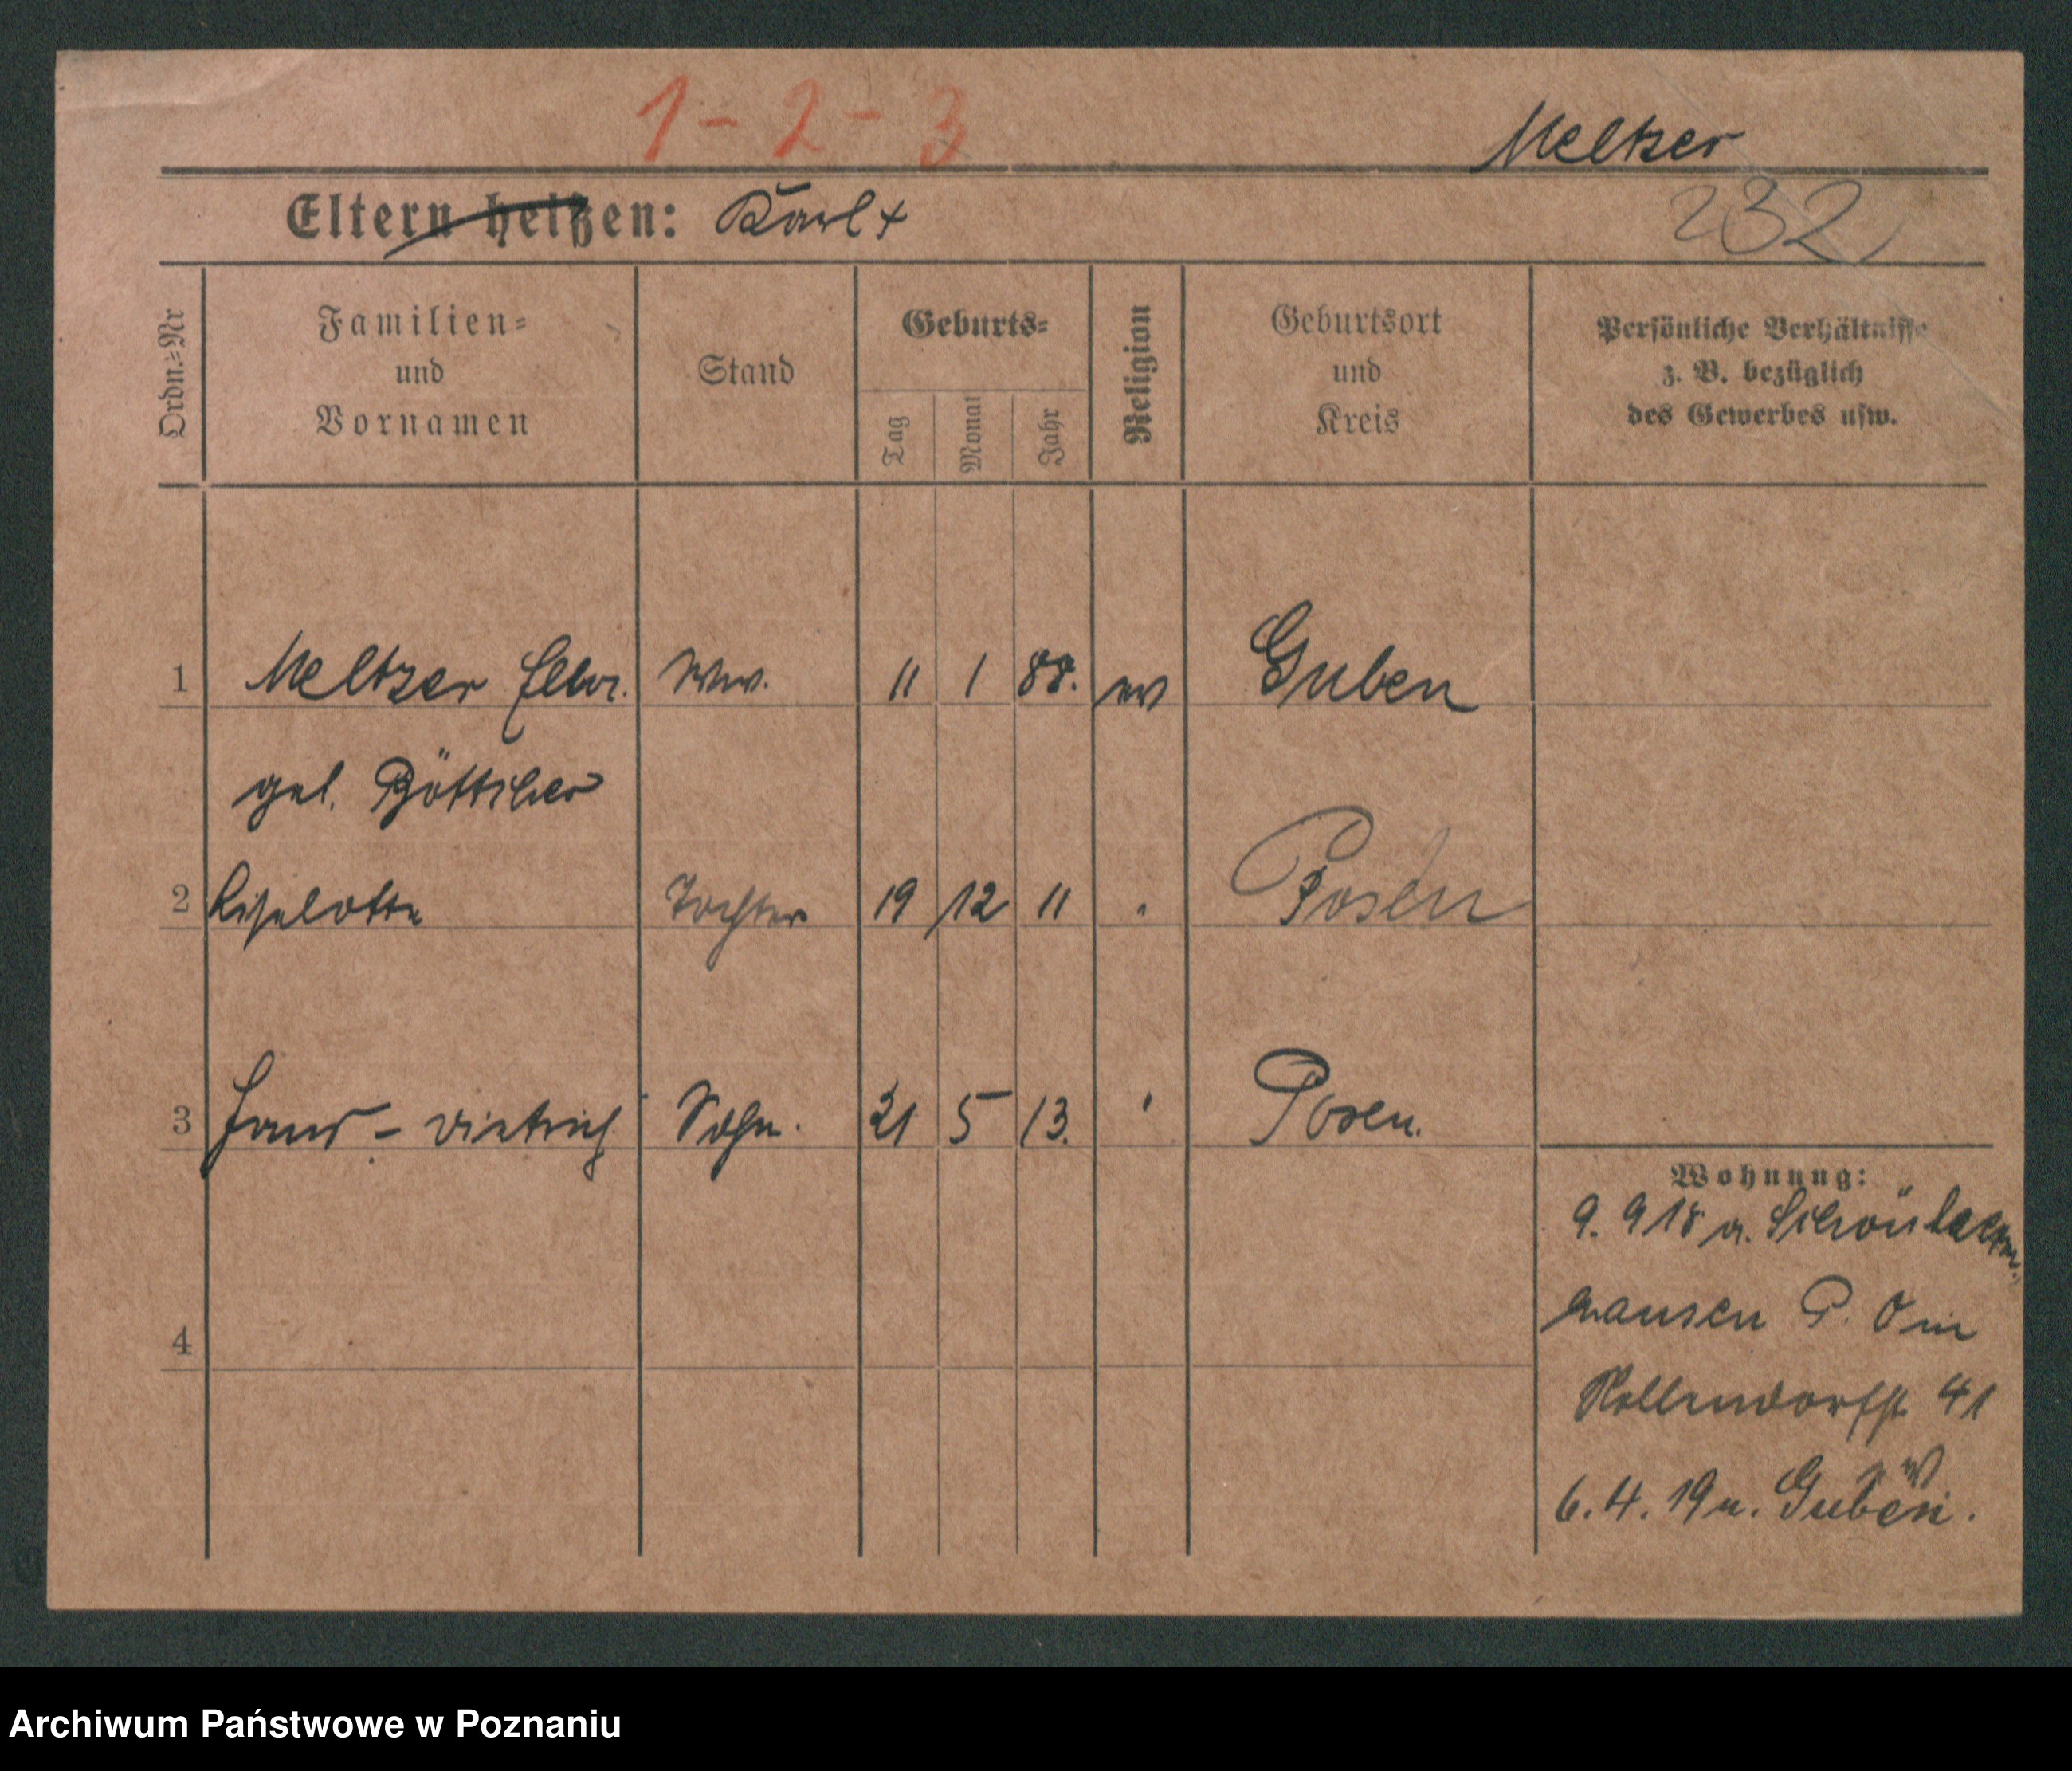 1 - 2 - 3
Meltzer
Eltern heißen: Karl +
232
Ordn.=Nr
Familien=
und
Vornamen
Stand
Geburts=
Tag
Monat
Jahr
Religion
Geburtsort
und
Kreis
Persönliche Verhältnisse
z. B. bezüglich
des Gewerbes usw.
1 Meltzer Ww. 11 1 88. ev Guben
geb. Böttcher
2 Liselotte Tochter 19 12 11 " Posen
3 Hans - Dietrich Sohn. 21 5 13. " Posen.
Wohnung:
9. 9 18 a.
hausen P.
Nollendorfst. 41
4
6. 4. 19 n. Guben.
Archiwum Państwowe w Poznaniu